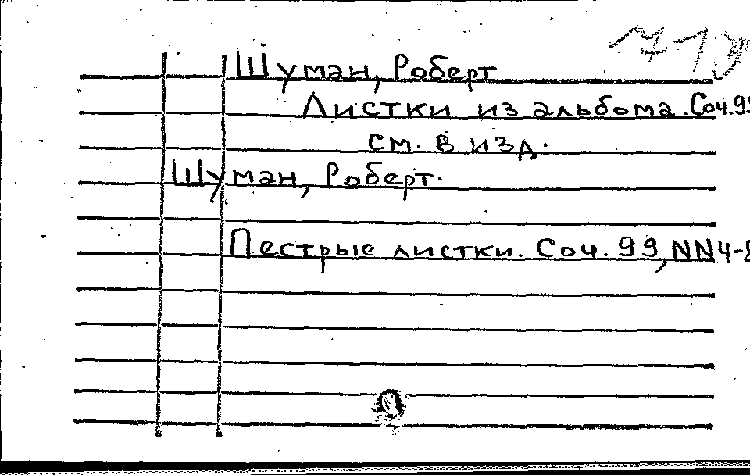 Шуман, Роберт
Листки из альбома. Соч. 99
см. в изд.
Шуман, Роберт.
Пестрые листки. Соч. 99, NN4-8